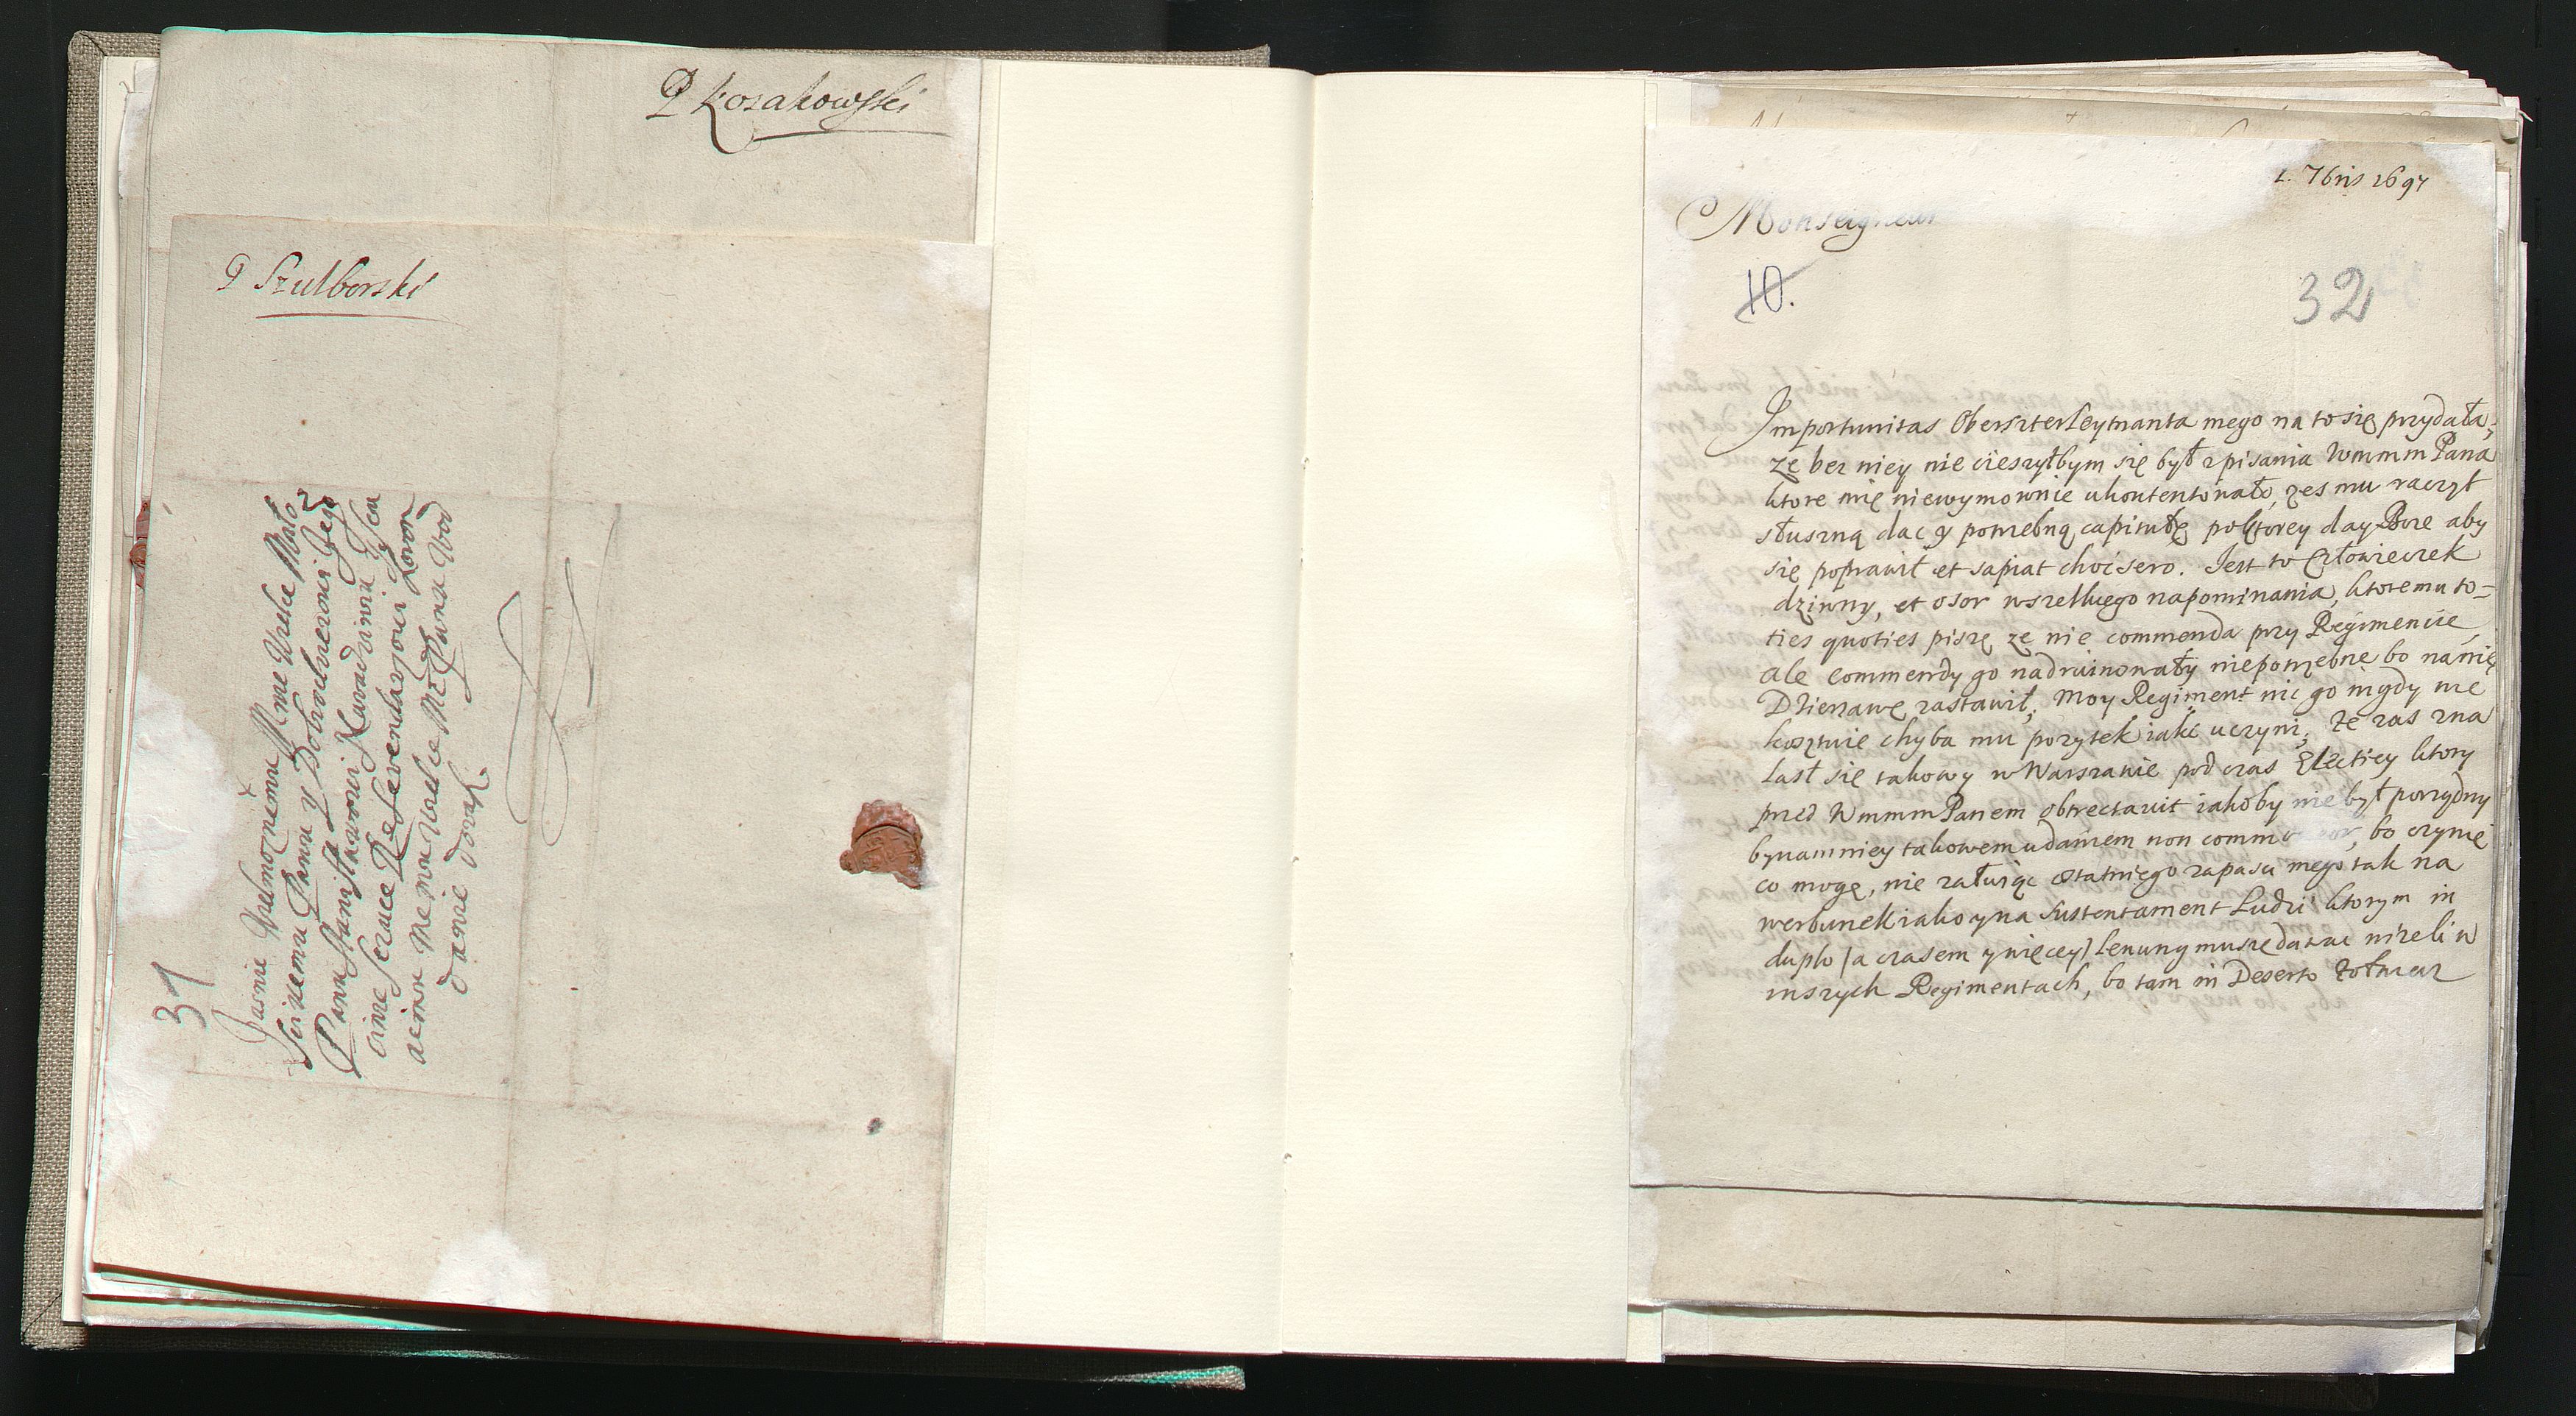 P Kosakowski
P Szulborski
31
Jasnie Wielmoznemu Mnie Wielce Mało
sciwemu Panu y Dobrodzieiowi Jego
Panu Stanisławowi
Referendarzowi Koron
Memu Wielce Mẽ Panu
danie
1. 7bris 1697
Monseigneur
10.
32
Importunitas Oberszterleytnanta mego na to się przydała,
ze bez niey nie cieszyłbym się był z pisania Wmmm Pana
ktore mię niewymownie ukontentowało, zes mu raczył
słuszną dac y potrzebną capitułę poktorey day Boze aby
się poprawił et sapiat choc sero. Jest to Człowieczek
dziwny, et osor wszelkiego napominania, ktoremu to-
ties quoties piszę ze nie commenda przy Regimencie
ale commendy go nadruinowały niepotrzebne bo na nię
Dzierzawę zastawił, moy Regiment nic go nigdy nie
kosztuie chyba mu pozytek iaki uczyni, ze zas zna
lasł się takowy w Warszawie pod czas Electiey ktory
przed WmmmPanem obtrectavit iakoby nie był porzydny
bynamniey takowem udaniem non commo , bo czynię
co mogę, nie załuiąc ostatniego zapasu mego tak na
werbunek iako y na sustentament Ludzi ktorym in
duplo (a czasem y więcey) lenung muszę dawac nizeli w
inszych Regimentach, bo tam in Deserto zołnierz